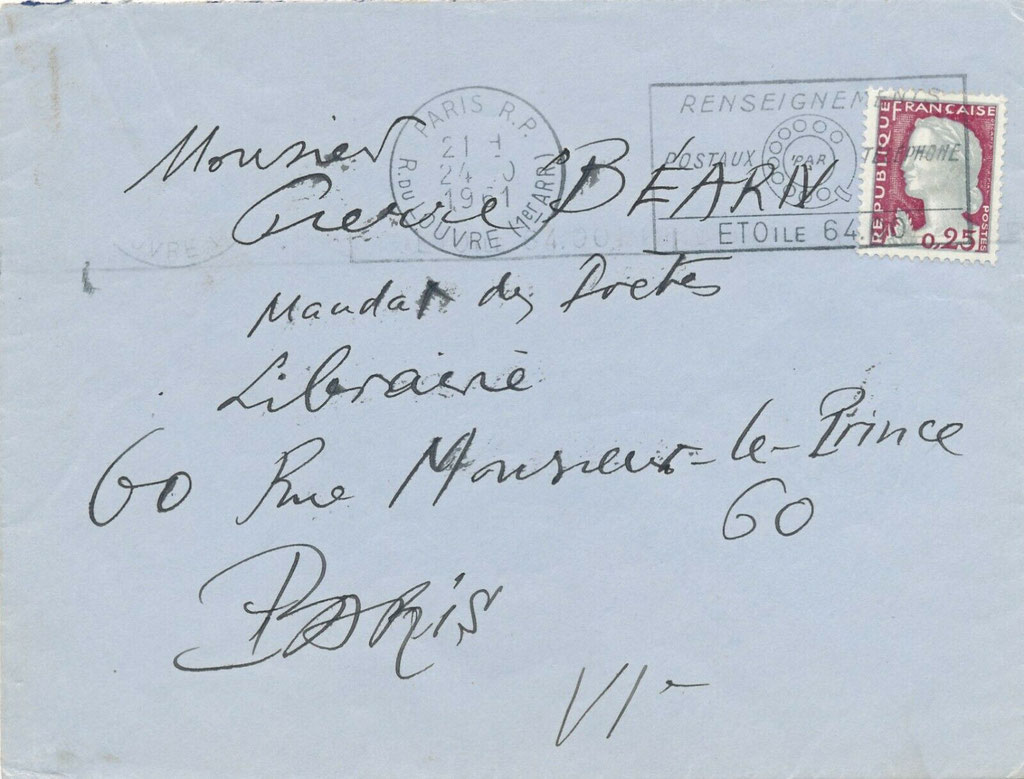 PARIS R.P.
21 H
24
1961
R. DU LOUVRE (1er ARRt)
RENSEIGNEMENTS
POSTAUX PAR TELEPHONE
ETOILE 64.00
REPUBLIQUE FRANÇAISE
POSTES
0,25
Monsieur
Pierre BÉARN
Mandat des Poètes
Librairie
60 Rue Monsieur-le-Prince
60
PARIS
VIe